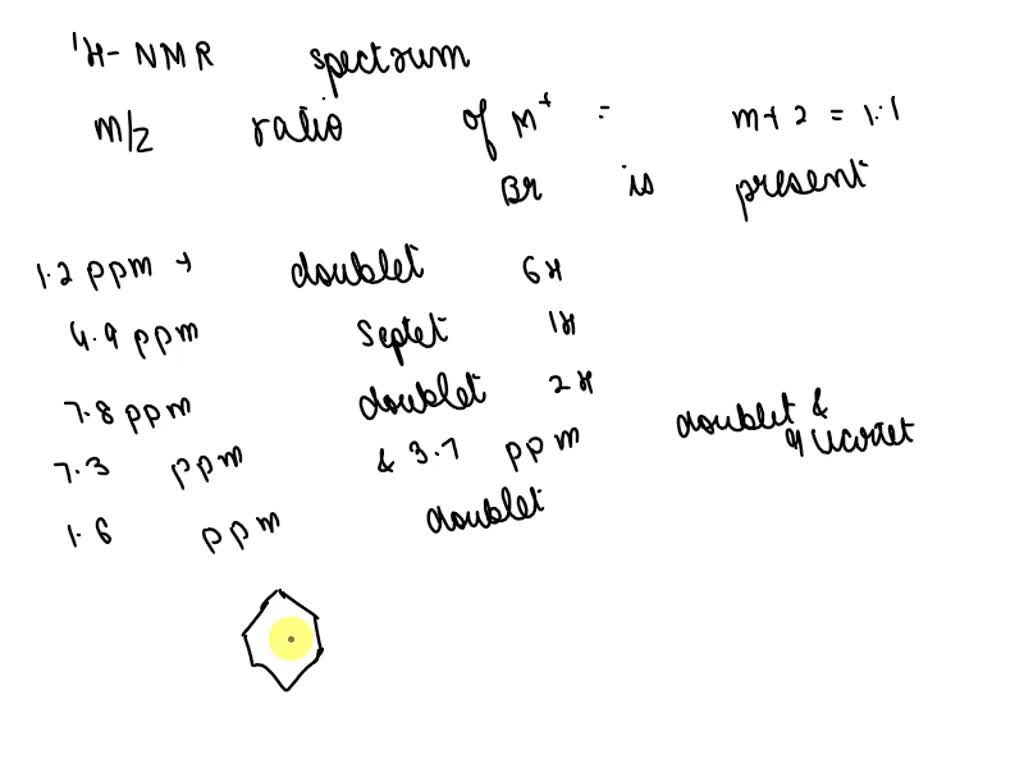 ¹H- NMR spectrum
m/z ratio of M⁺ : m+2 = 1:1
Br is present
1.2 ppm → doublet 6H
4.9 ppm septet 1H
7.8 ppm doublet 2H
7.3 ppm & 3.7 ppm doublet &
quartet
1.6 ppm doublet